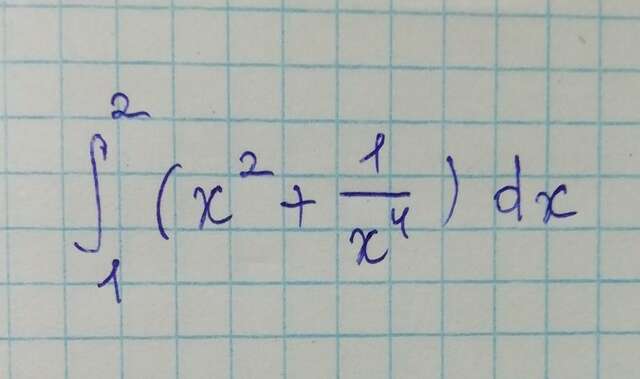 ∫₁² (x² + 1/x⁴) dx